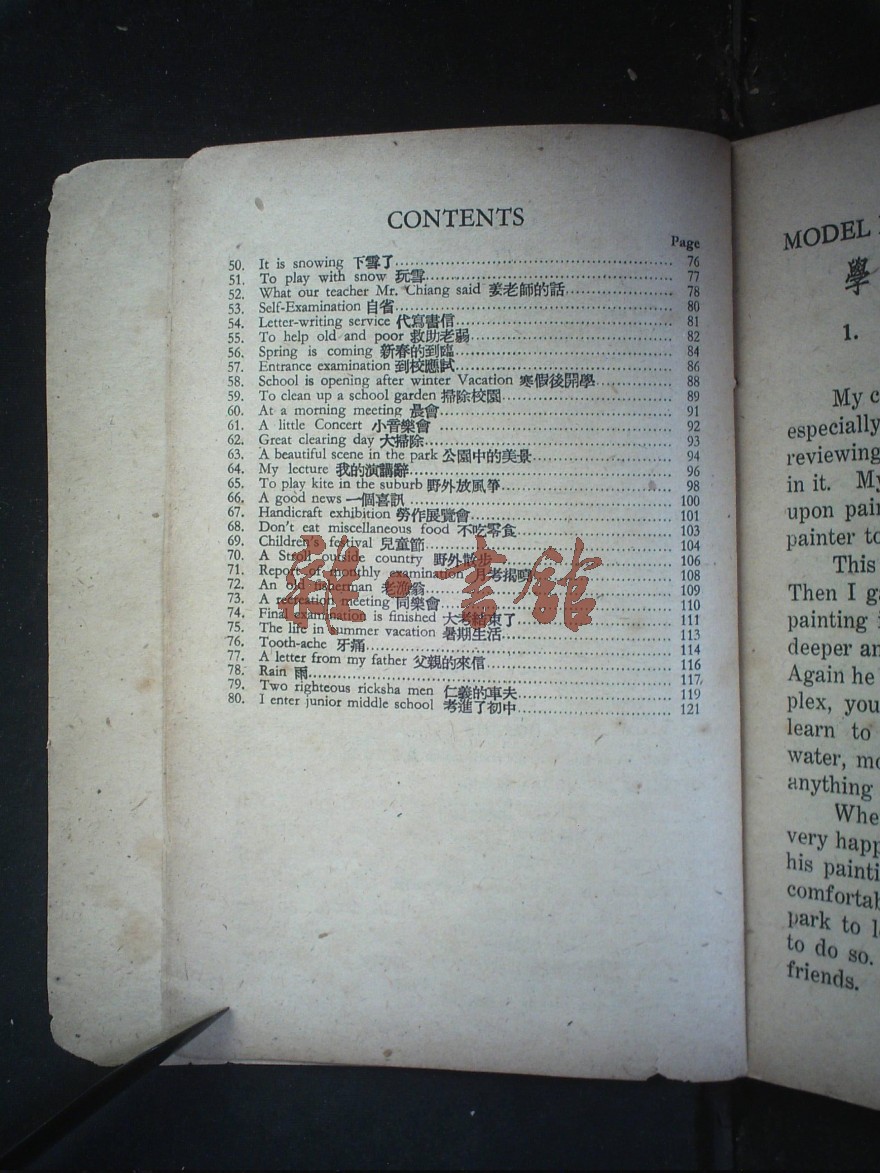 CONTENTS
Page
50. It is snowing 下雪了 76
51. To play with snow 玩雪 77
52. What our teacher Mr. Chiang said 姜老師的話 78
53. Self-Examination 自省 80
54. Letter-writing service 代寫書信 81
55. To help old and poor 救助老弱 82
56. Spring is coming 新春的到臨 84
57. Entrance examination 到校應試 86
58. School is opening after winter Vacation 寒假後開學 88
59. To clean up a school garden 掃除校園 89
60. At a morning meeting 晨會 91
61. A little Concert 小音樂會 92
62. Great clearing day 大掃除 93
63. A beautiful scene in the park 公園中的美景 94
64. My lecture 我的演講辭 96
65. To play kite in the suburb 野外放風箏 98
66. A good news 一個喜訊 100
67. Handicraft exhibition 勞作展覽會 101
68. Don't eat miscellaneous food 不吃零食 103
69. Children's festival 兒童節 104
70. A Stroll outside country 野外散步 106
71. Report of monthly examination 月考揭曉 108
72. An old fisherman 老漁翁 109
73. A recreation meeting 同樂會 110
74. Final examination is finished 大考結束了 111
75. The life in summer vacation 暑期生活 113
76. Tooth-ache 牙痛 114
77. A letter from my father 父親的來信 116
78. Rain 雨 117
79. Two righteous ricksha men 仁義的車夫 119
80. I enter junior middle school 考進了初中 121
MODEL
學
1.
My
especially
reviewing
in it. My
upon
painter to
This
Then I
painting
deeper
Again he
plex, you
learn to
water,
anything
very
his
park to
to do so.
friends.
書館